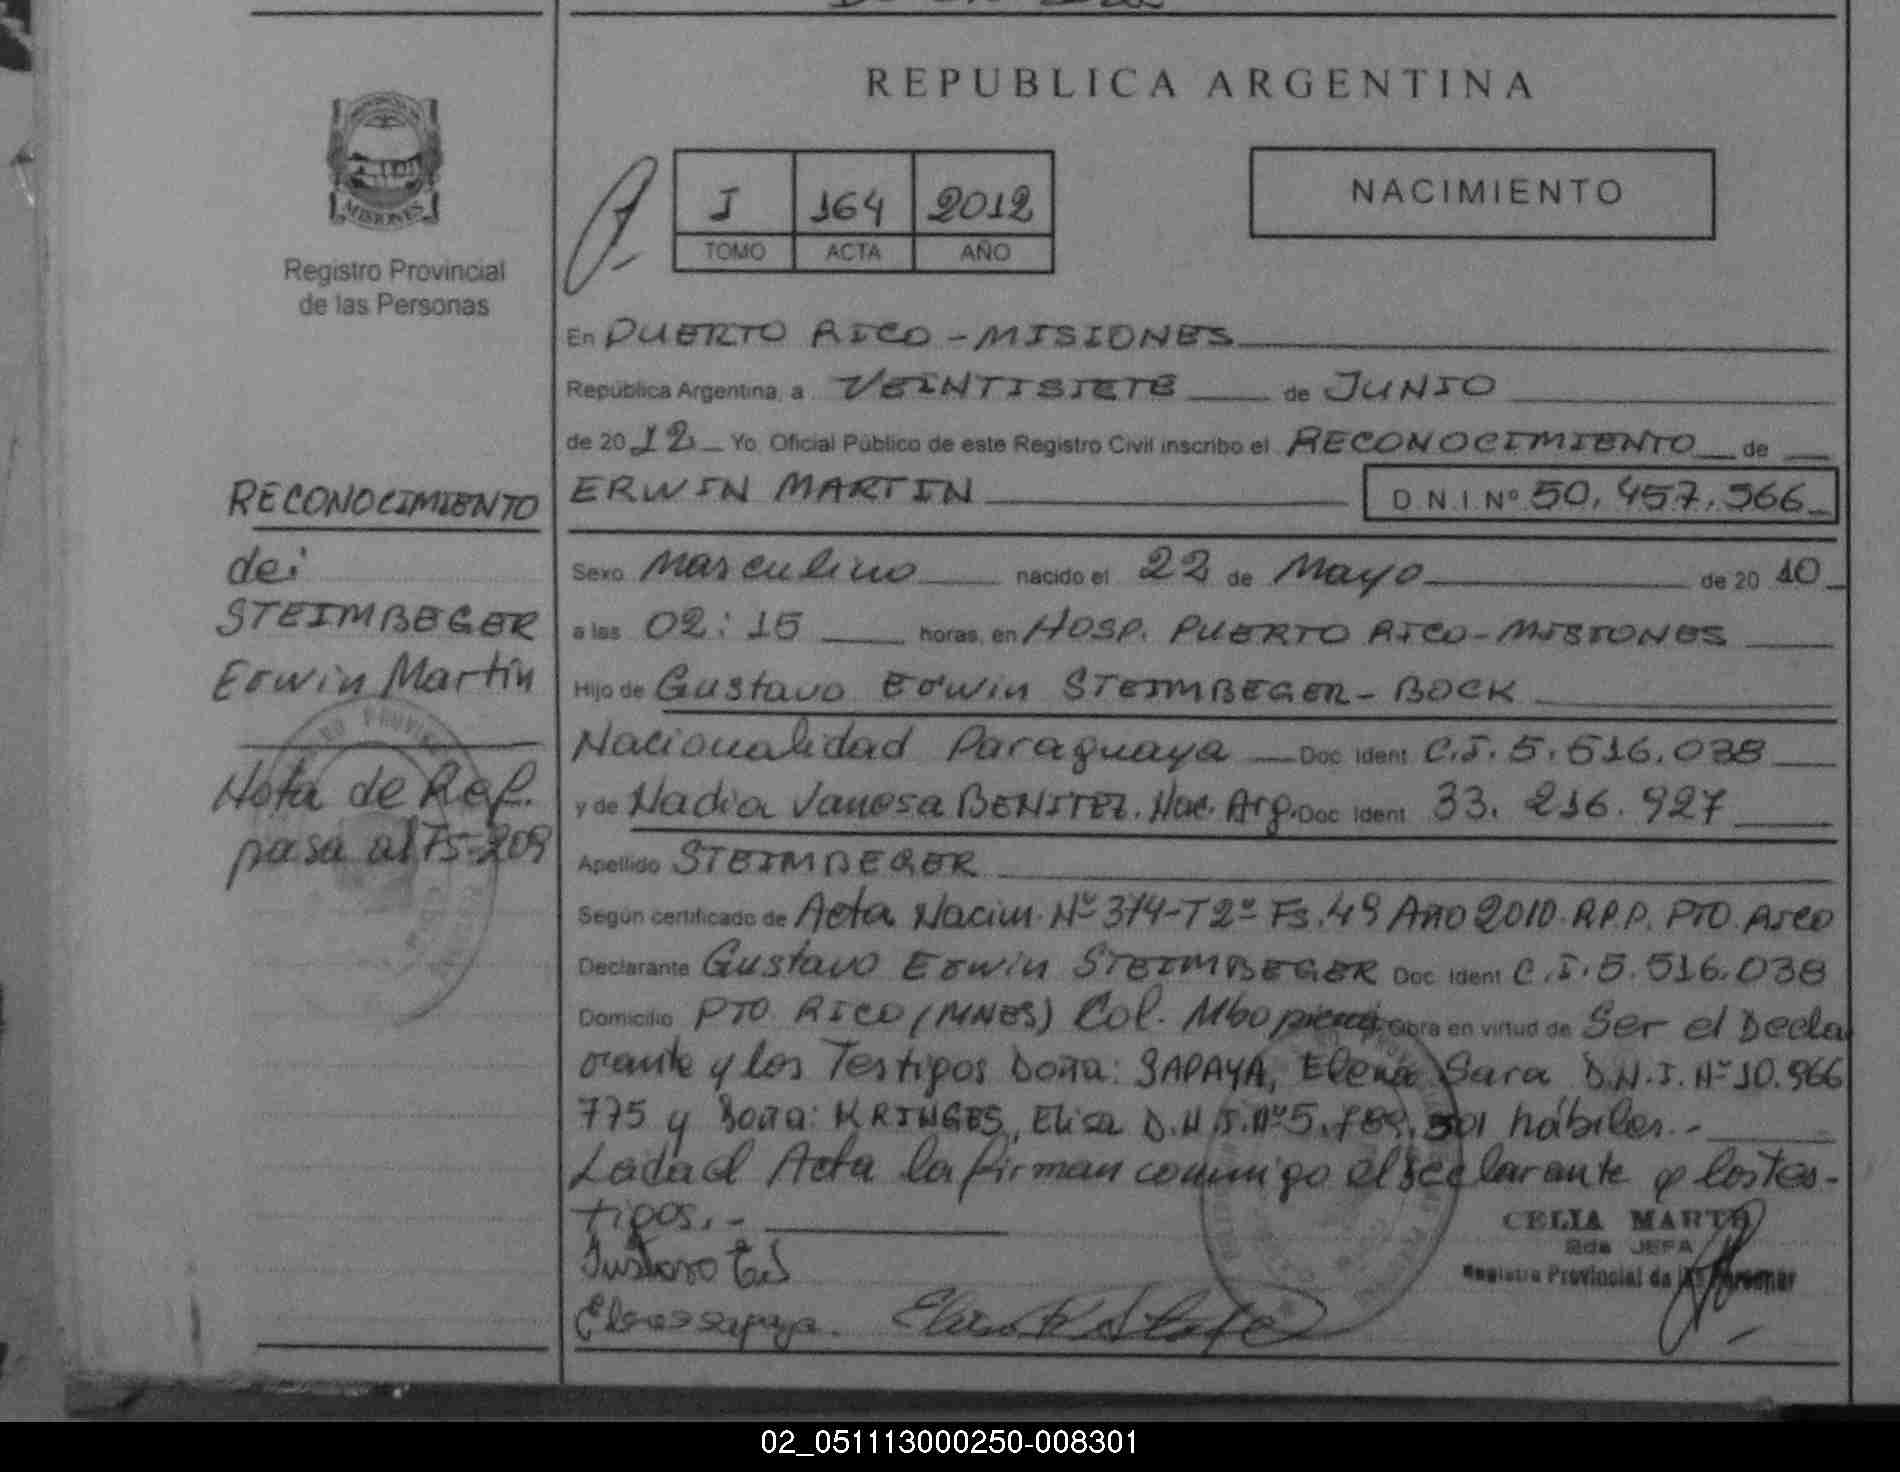 REPUBLICA ARGENTINA
MISIONES
Registro Provincial
de las Personas
I 164 2012
TOMO ACTA AÑO
NACIMIENTO
En PUERTO RICO - MISIONES
República Argentina, a VEINTISIETE de JUNIO
de 2012 Yo, Oficial Público de este Registro Civil inscribo el RECONOCIMIENTO de
ERWIN MARTIN D.N.I. Nº 50.457.566
Sexo Masculino nacido el 22 de Mayo de 2010
a las 02:15 horas, en HOSP. PUERTO RICO - MISIONES
Hijo de Gustavo Erwin STEIMBEGER - BOCK
Nacionalidad Paraguaya Doc Ident C.I. 5.516.038
y de Nadia Vanesa BENITEZ. Nac. Arg. Doc Ident 33.216.927
Apellido STEIMBEGER
Según certificado de Acta Nacim. Nº 374-T2º Fs.49 Año 2010. R.P.P. PTO. RICO
Declarante Gustavo Erwin STEIMBEGER Doc Ident C.I. 5.516.038
Domicilio PTO RICO (MNES) Col. Mbopicuá Obra en virtud de Ser el Decla
rante y los Testigos Doña: SAPAYA, Elena Sara D.N.I. Nº 10.966
775 y Doña: KRINGES, Elisa D.N.I. Nº 5.789.501 hábiles.-
Leída el Acta la firman conmigo el declarante y los tes-
tigos.-
Gustavo E.S
CELIA MARTE
2da JEFA
Registro Provincial de las Personas
RECONOCIMIENTO
de:
STEIMBEGER
Erwin Martin
Nota de Ref.
pasa al Fs-209
02_051113000250-008301